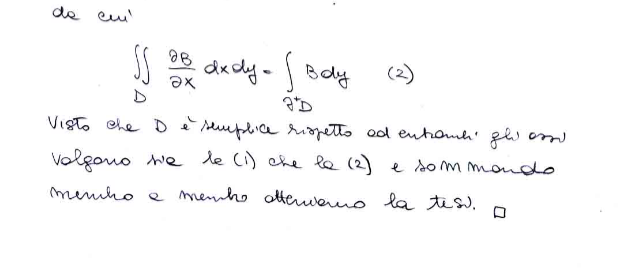 da cui
∬_D ∂B/∂x dxdy = ∫_{∂⁺D} B dy (2)
Visto che D è semplice rispetto ad entrambi gli assi
valgono sia la (1) che la (2) e sommando
membro a membro otteniamo la tesi. □